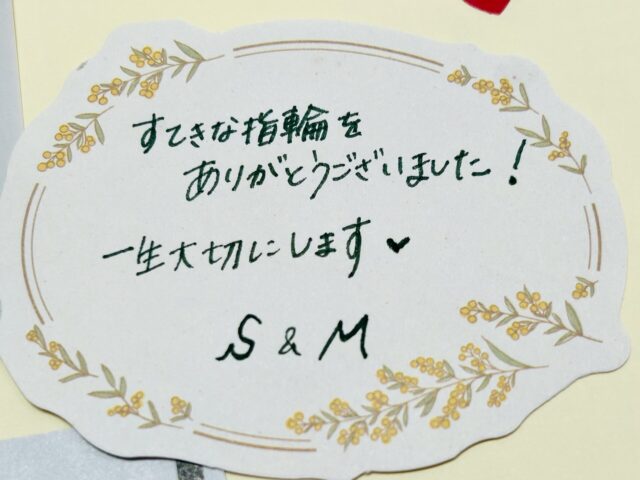 すてきな指輪を
ありがとうございました!
一生大切にします♥
S & M